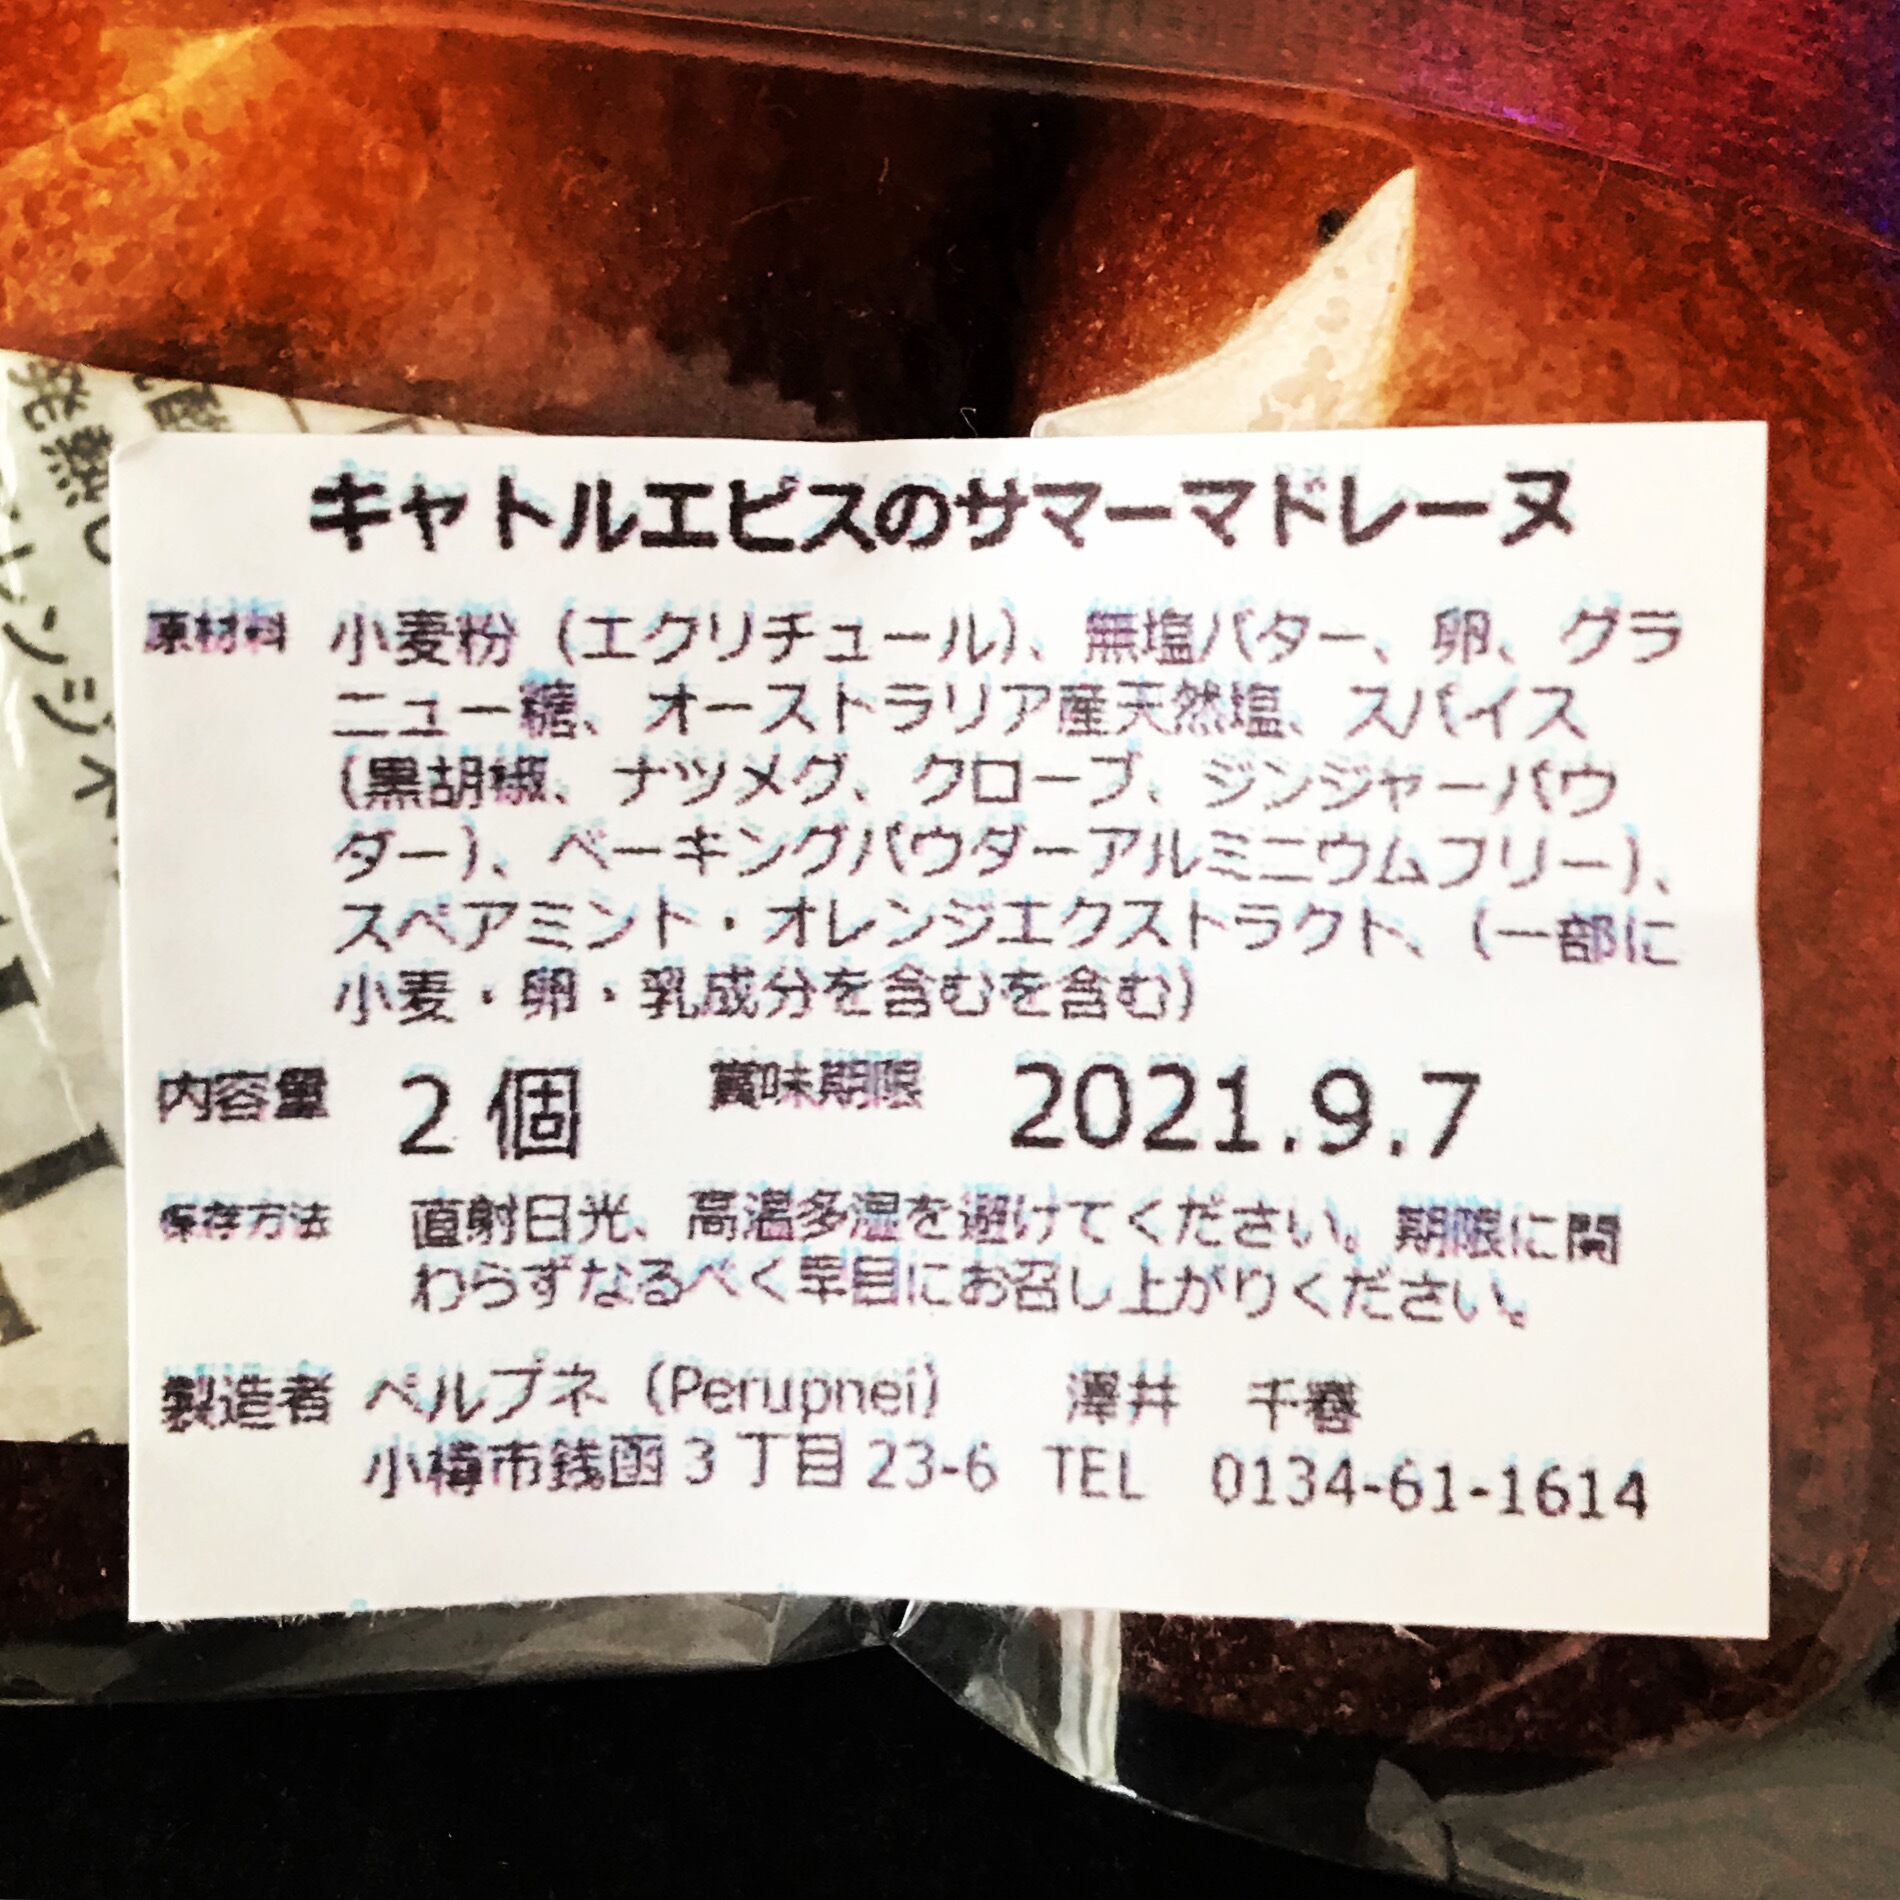 キャトルエピスのサマーマドレーヌ
原材料 小麦粉（エクリチュール）、無塩バター、卵、グラ
ニュー糖、オーストラリア産天然塩、スパイス
（黒胡椒、ナツメグ、クローブ、ジンジャーパウ
ダー）、ベーキングパウダーアルミニウムフリー）、
スペアミント・オレンジエクストラクト、（一部に
小麦・卵・乳成分を含むを含む）
内容量 2個 賞味期限 2021.9.7
保存方法 直射日光、高温多湿を避けてください。期限に関
わらずなるべく早目にお召し上がりください。
製造者 ペルプネ（Perupnei） 澤井 千春
小樽市銭函3丁目23-6 TEL 0134-61-1614